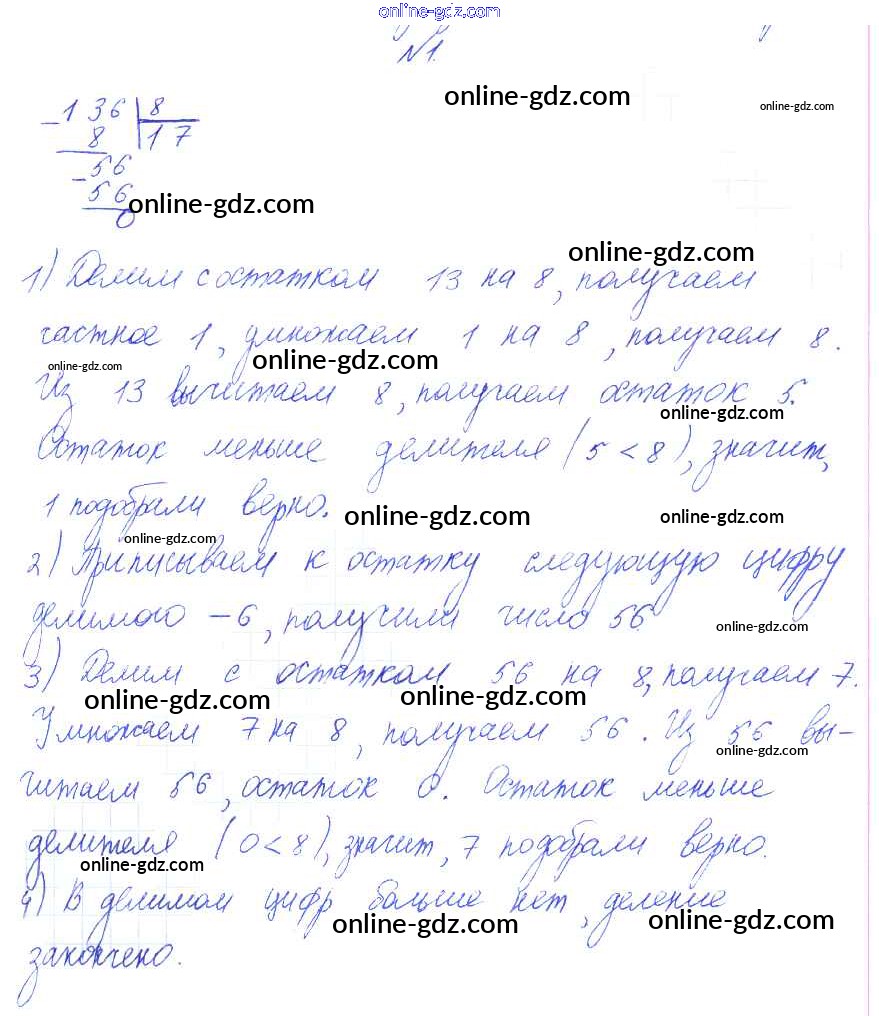 online-gdz.com
№1.
online-gdz.com
online-gdz.com
136 | 8
8 | 17
-56
56
0
online-gdz.com
online-gdz.com
1) Делим с остатком 13 на 8, получаем
частное 1, умножаем 1 на 8, получаем 8.
online-gdz.com
online-gdz.com
Из 13 вычитаем 8, получаем остаток 5.
online-gdz.com
Остаток меньше делителя (5 < 8), значит,
1 подобрали верно.
online-gdz.com
online-gdz.com
online-gdz.com
2) Приписываем к остатку следующую цифру
делимого - 6, получили число 56.
online-gdz.com
3) Делим с остатком 56 на 8, получаем 7.
online-gdz.com
online-gdz.com
Умножаем 7 на 8, получаем 56. Из 56 вы-
online-gdz.com
читаем 56, остаток 0. Остаток меньше
делителя (0 < 8), значит, 7 подобрали верно.
online-gdz.com
4) В делимом цифр больше нет, деление
online-gdz.com
online-gdz.com
закончено.